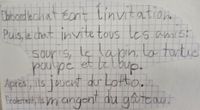 D'abord le chat écrit l'invitation.
Puis, le chat invite tous les amis:
souris, le lapin, la tortue
et le loup.
Après, ils jouent au Lotto.
ils mangent du gâteau.